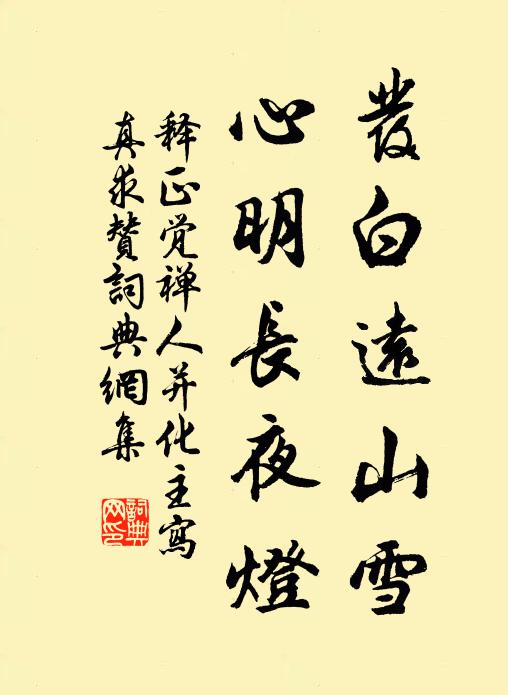 發白遠山雪
心明長夜燈
释正觉禅人并化主寫
真求贊詞典網集
詞典网印